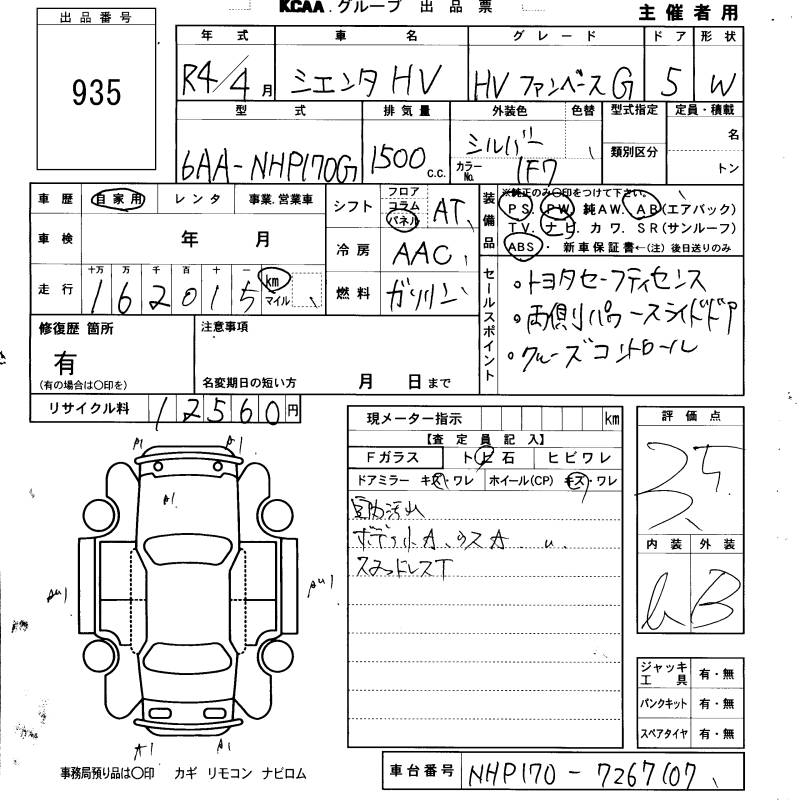 KCAA.グループ 出品票
主催者用
出品番号
935
年式 車名 グレード ドア 形状
R4/4月 シエンタHV HV ファンベースG 5 W
型式 排気量 外装色 色替 型式指定 定員・積載
6AA-NHP170G 1500 c.c. シルバー 名
カラーNo. 1F7 類別区分 トン
車歴 自家用 レンタ 事業.営業車
車検 年 月
走行 十万 万 千 百 十 一
162015 km マイル
シフト フロア コラム パネル AT
冷房 AAC
燃料 ガソリン
装備品 ※純正のみ〇印をつけて下さい。
PS. PW. 純AW. AB(エアバック)
TV. ナビ. カワ. SR(サンルーフ)
ABS・ 新車保証書←(注)後日送りのみ
セールスポイント
・トヨタセーフティセンス
・両側パワースライドドア
・クルーズコントロール
修復歴 箇所
有
(有の場合は〇印を)
注意事項
名変期日の短い方 月 日まで
リサイクル料 12560円
現メーター指示 km
【査定員記入】
Fガラス トビ石 ヒビワレ
ドアミラー キズ・ワレ ホイール(CP) キズ・ワレ
スタッドレスT
評価点
3.5
内装 外装
B
ジャッキ工具 有・無
パンクキット 有・無
スペアタイヤ 有・無
A1
A1
事務局預り品は〇印 カギ リモコン ナビロム
車台番号 NHP170-7267107